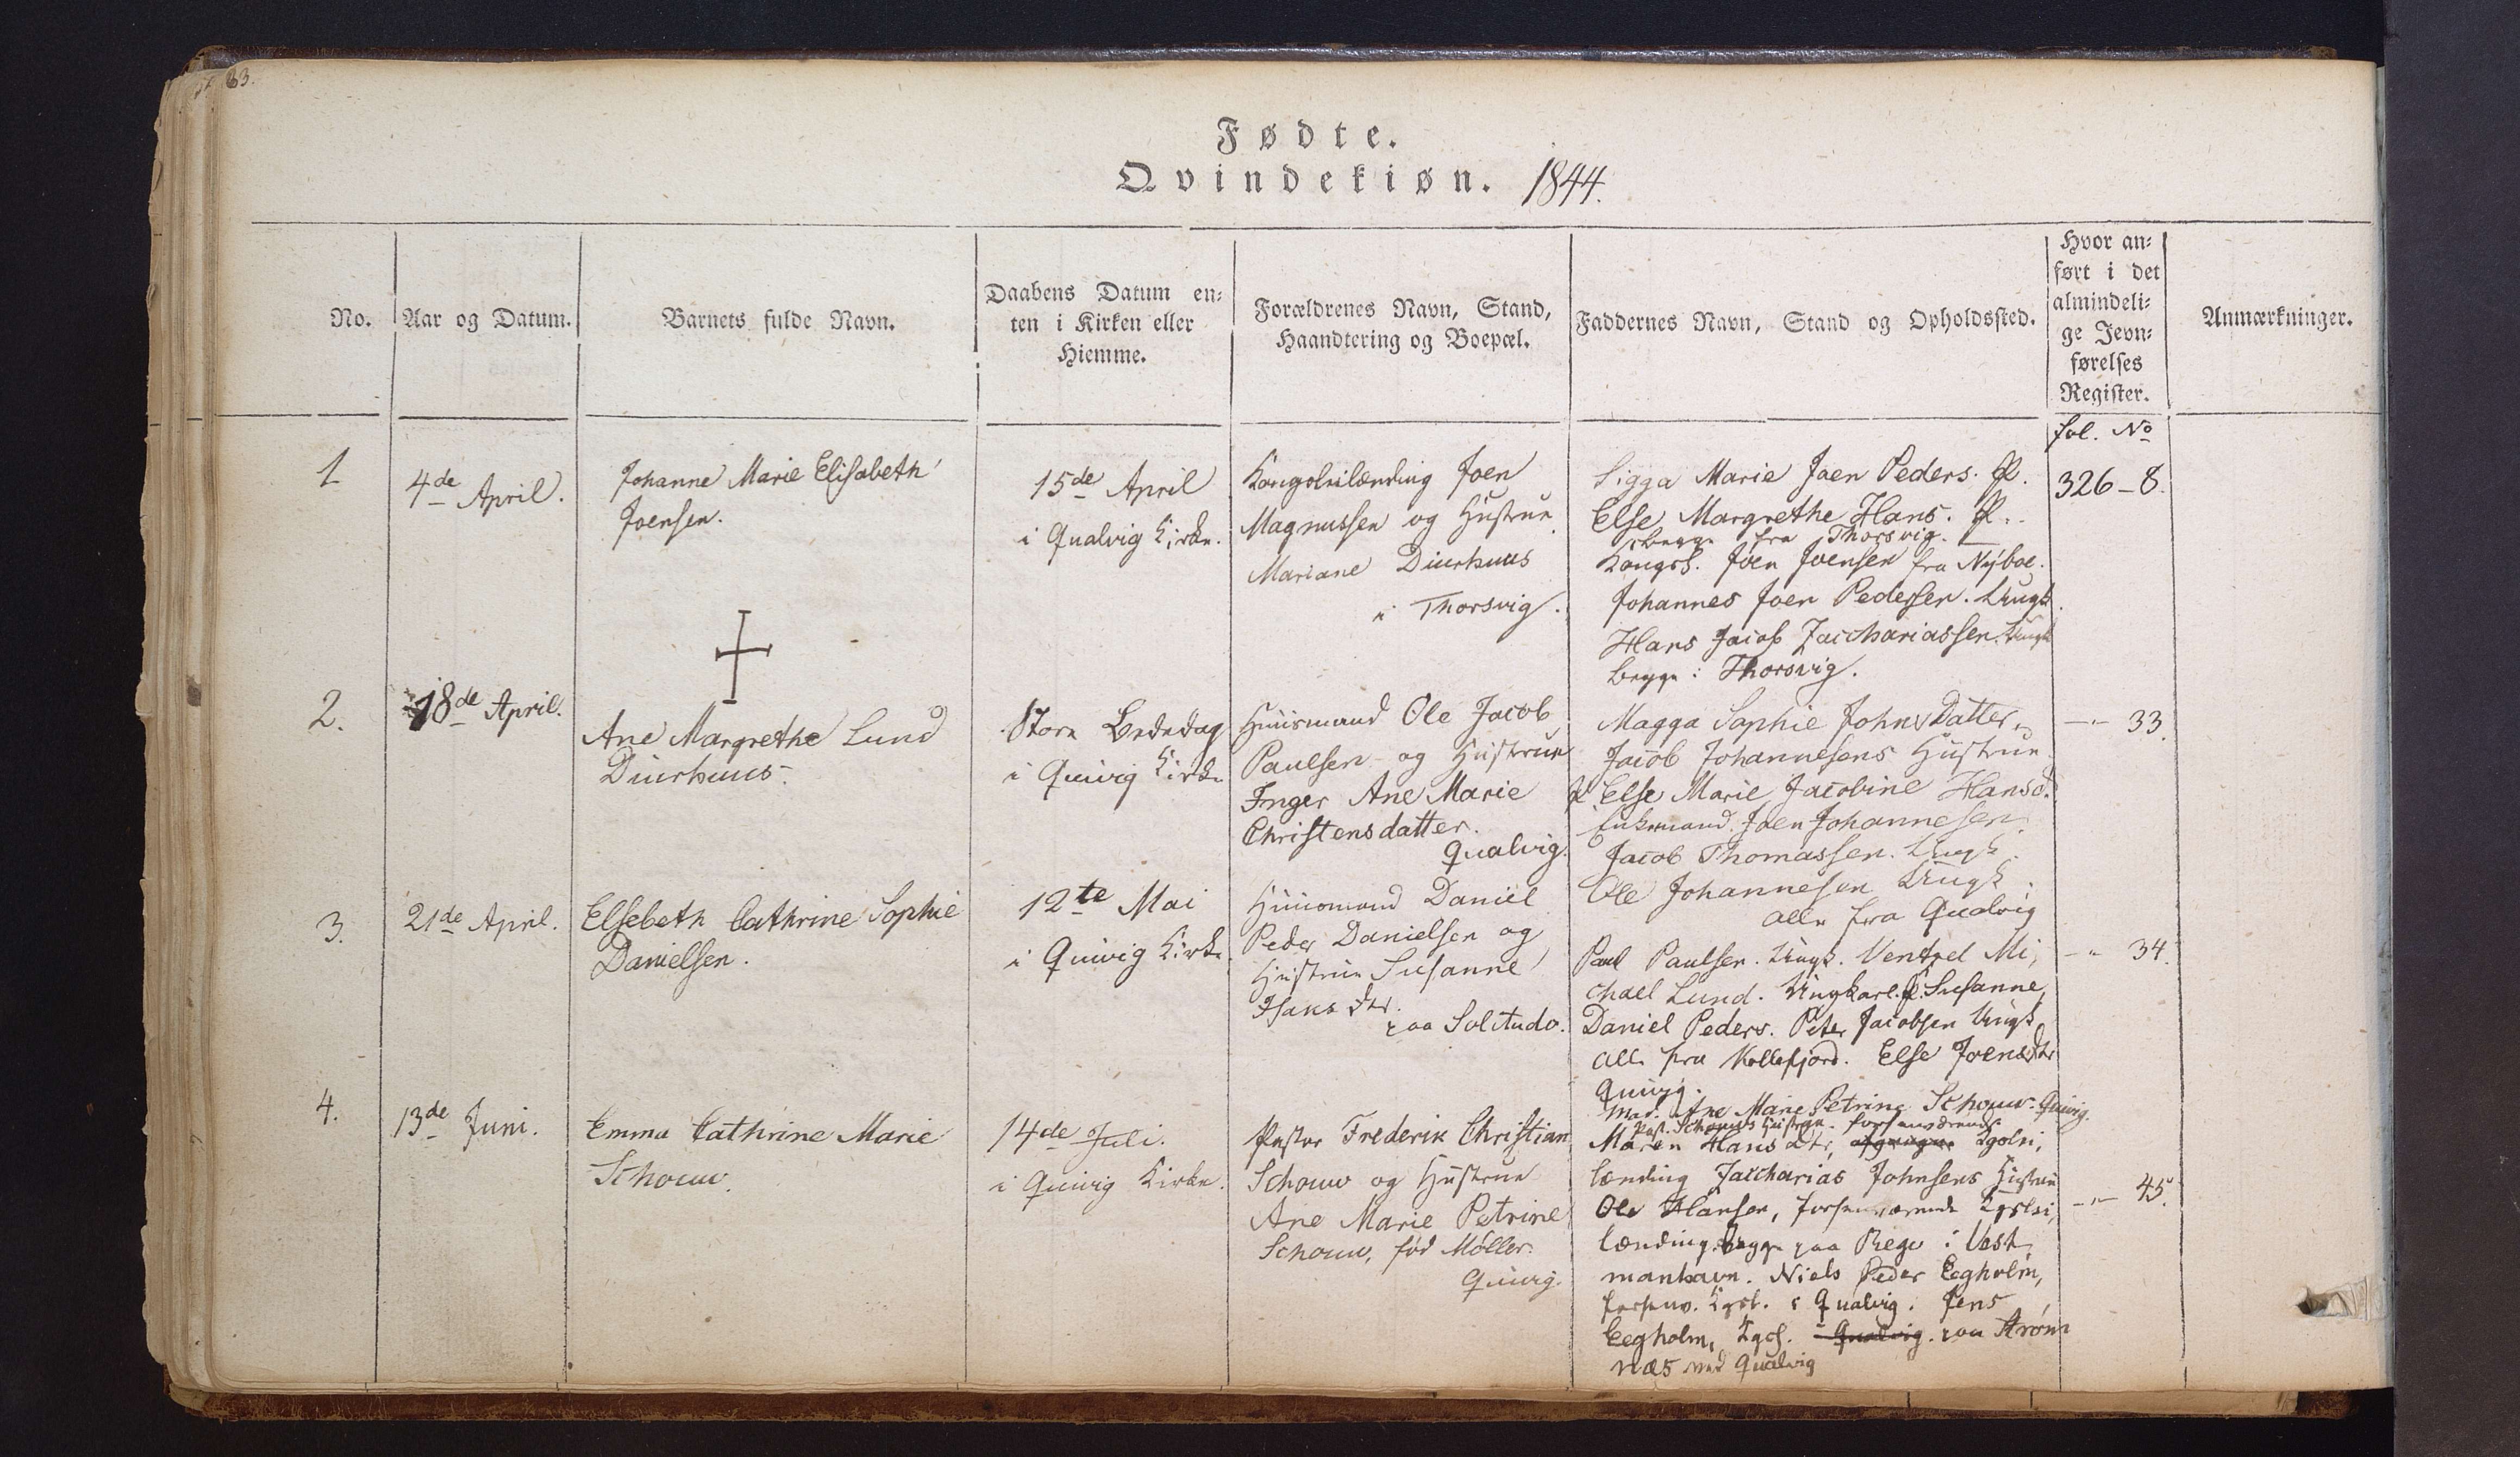 63.
Fødte.
Qvindekiøn. 1844.
No.
Aar og Datum.
Barnets fulde Navn.
Daabens Datum en-
ten i Kirken eller
Hiemme.
Forældrenes Navn, Stand,
Haandtering og Boepæl.
Faddernes Navn, Stand og Opholdssted.
Hvor an-
ført i det
almindeli-
ge Jevn-
førelses
Register.
Anmærkninger.
fol. No
1
4de April.
Johanne Marie Elisabeth
Joensen.
15de April
i Qualvig Kirke.
Joen
Magnussen og Hustrue
Mariane Diurhuus
i Thorsvig.
Sigga Marie Joen Peders. P.
Else Margrethe Hans. P.
begge fra Thorsvig.
Kongsb. Joen Joensen fra Nÿboe.
Johannes Joen Pedersen. Ungk.
Hans Jacob Zacchariassen. Ungk
begge i Thorsvig.
326-8.
2.
18de April.
Ane Margrethe Lund
Diurhuus.
Store Bededag
i Quivig Kirke
Huusmand Ole Jacob
Paulsen og Hustrue
Inger Ane Marie
Christensdatter.
Qualvig.
Magga Sophie Johns Datter,
Jacob Johannesens Hustrue
P. Else Marie Jacobine Hansd.
Enkemand. Joen Johannesen.
Jacob Thomassen. Ungk.
Ole Johannesen Ungk.
alle fra Qualvig
-"- 33.
3.
21de April.
Elsebeth Cathrine Sophie
Danielsen.
12te Mai
i Quivig Kirke
Huusmand Daniel
Peder Danielsen og
Hustrue Susanne
Hans dtr.
paa Solitudo.
Paul Paulsen. Ungk. Ventzel Mi-
chael Lund. Ungkarl. P. Susanne
Daniel Peders. Peter Jacobsen Ungk
alle fra Kollefjord. Else Joensdtr
Quivig.
-"- 34.
4.
13de Juni.
Emma Cathrine Marie
Schouw.
14de Juli.
i Quivig Kirke.
Pastor Frederik Christian
Schouw og Hustrue
Ane Marie Petrine
Schouw, fød Møller.
Quivig.
Mad. Ane Marie Petrine Schouw. Quivig.
Past. Schouws Hustrue. forhenværende
Maren Hans dtr,
lænding Zaccharias Johnsens Hustrue
Ole Hansen, forhenværende
lænding. begge paa Rege i Vest-
manhavn. Niels Peder Eegholm,
forhenv. i Qualvig. Jens
Eegholm, i Qualvig. paa Strøm-
næs ved Qualvig
-"- 45.